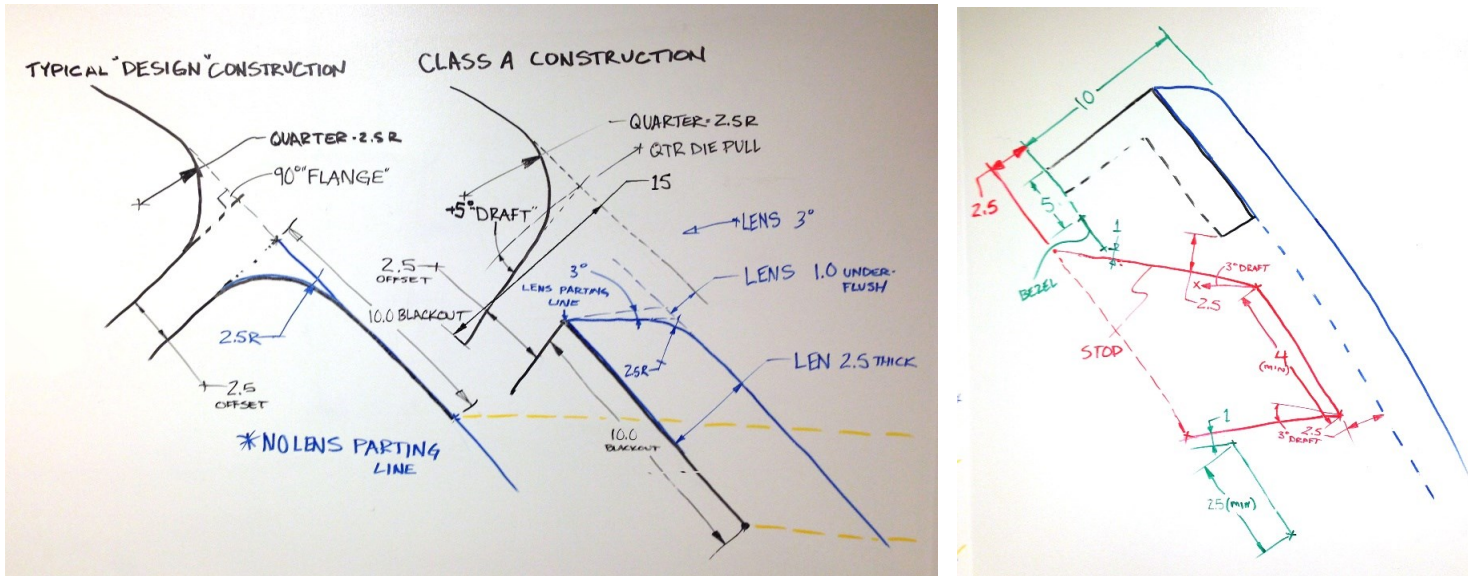 TYPICAL "DESIGN" CONSTRUCTION
QUARTER-2.5R
90° "FLANGE"
10.0 BLACKOUT
2.5R
2.5
OFFSET
*NO LENS PARTING
LINE
CLASS A CONSTRUCTION
QUARTER-2.5R
QTR DIE PULL
15
+5° "DRAFT"
LENS 3°
2.5
OFFSET
3°
LENS PARTING
LINE
LENS 1.0 UNDER-
FLUSH
25R
LEN 2.5 THICK
10.0
BLACKOUT
10
2.5
5
1
BEZEL
3° DRAFT
2.5
STOP
4
(MIN)
1
3° DRAFT
2.5
25 (MIN)